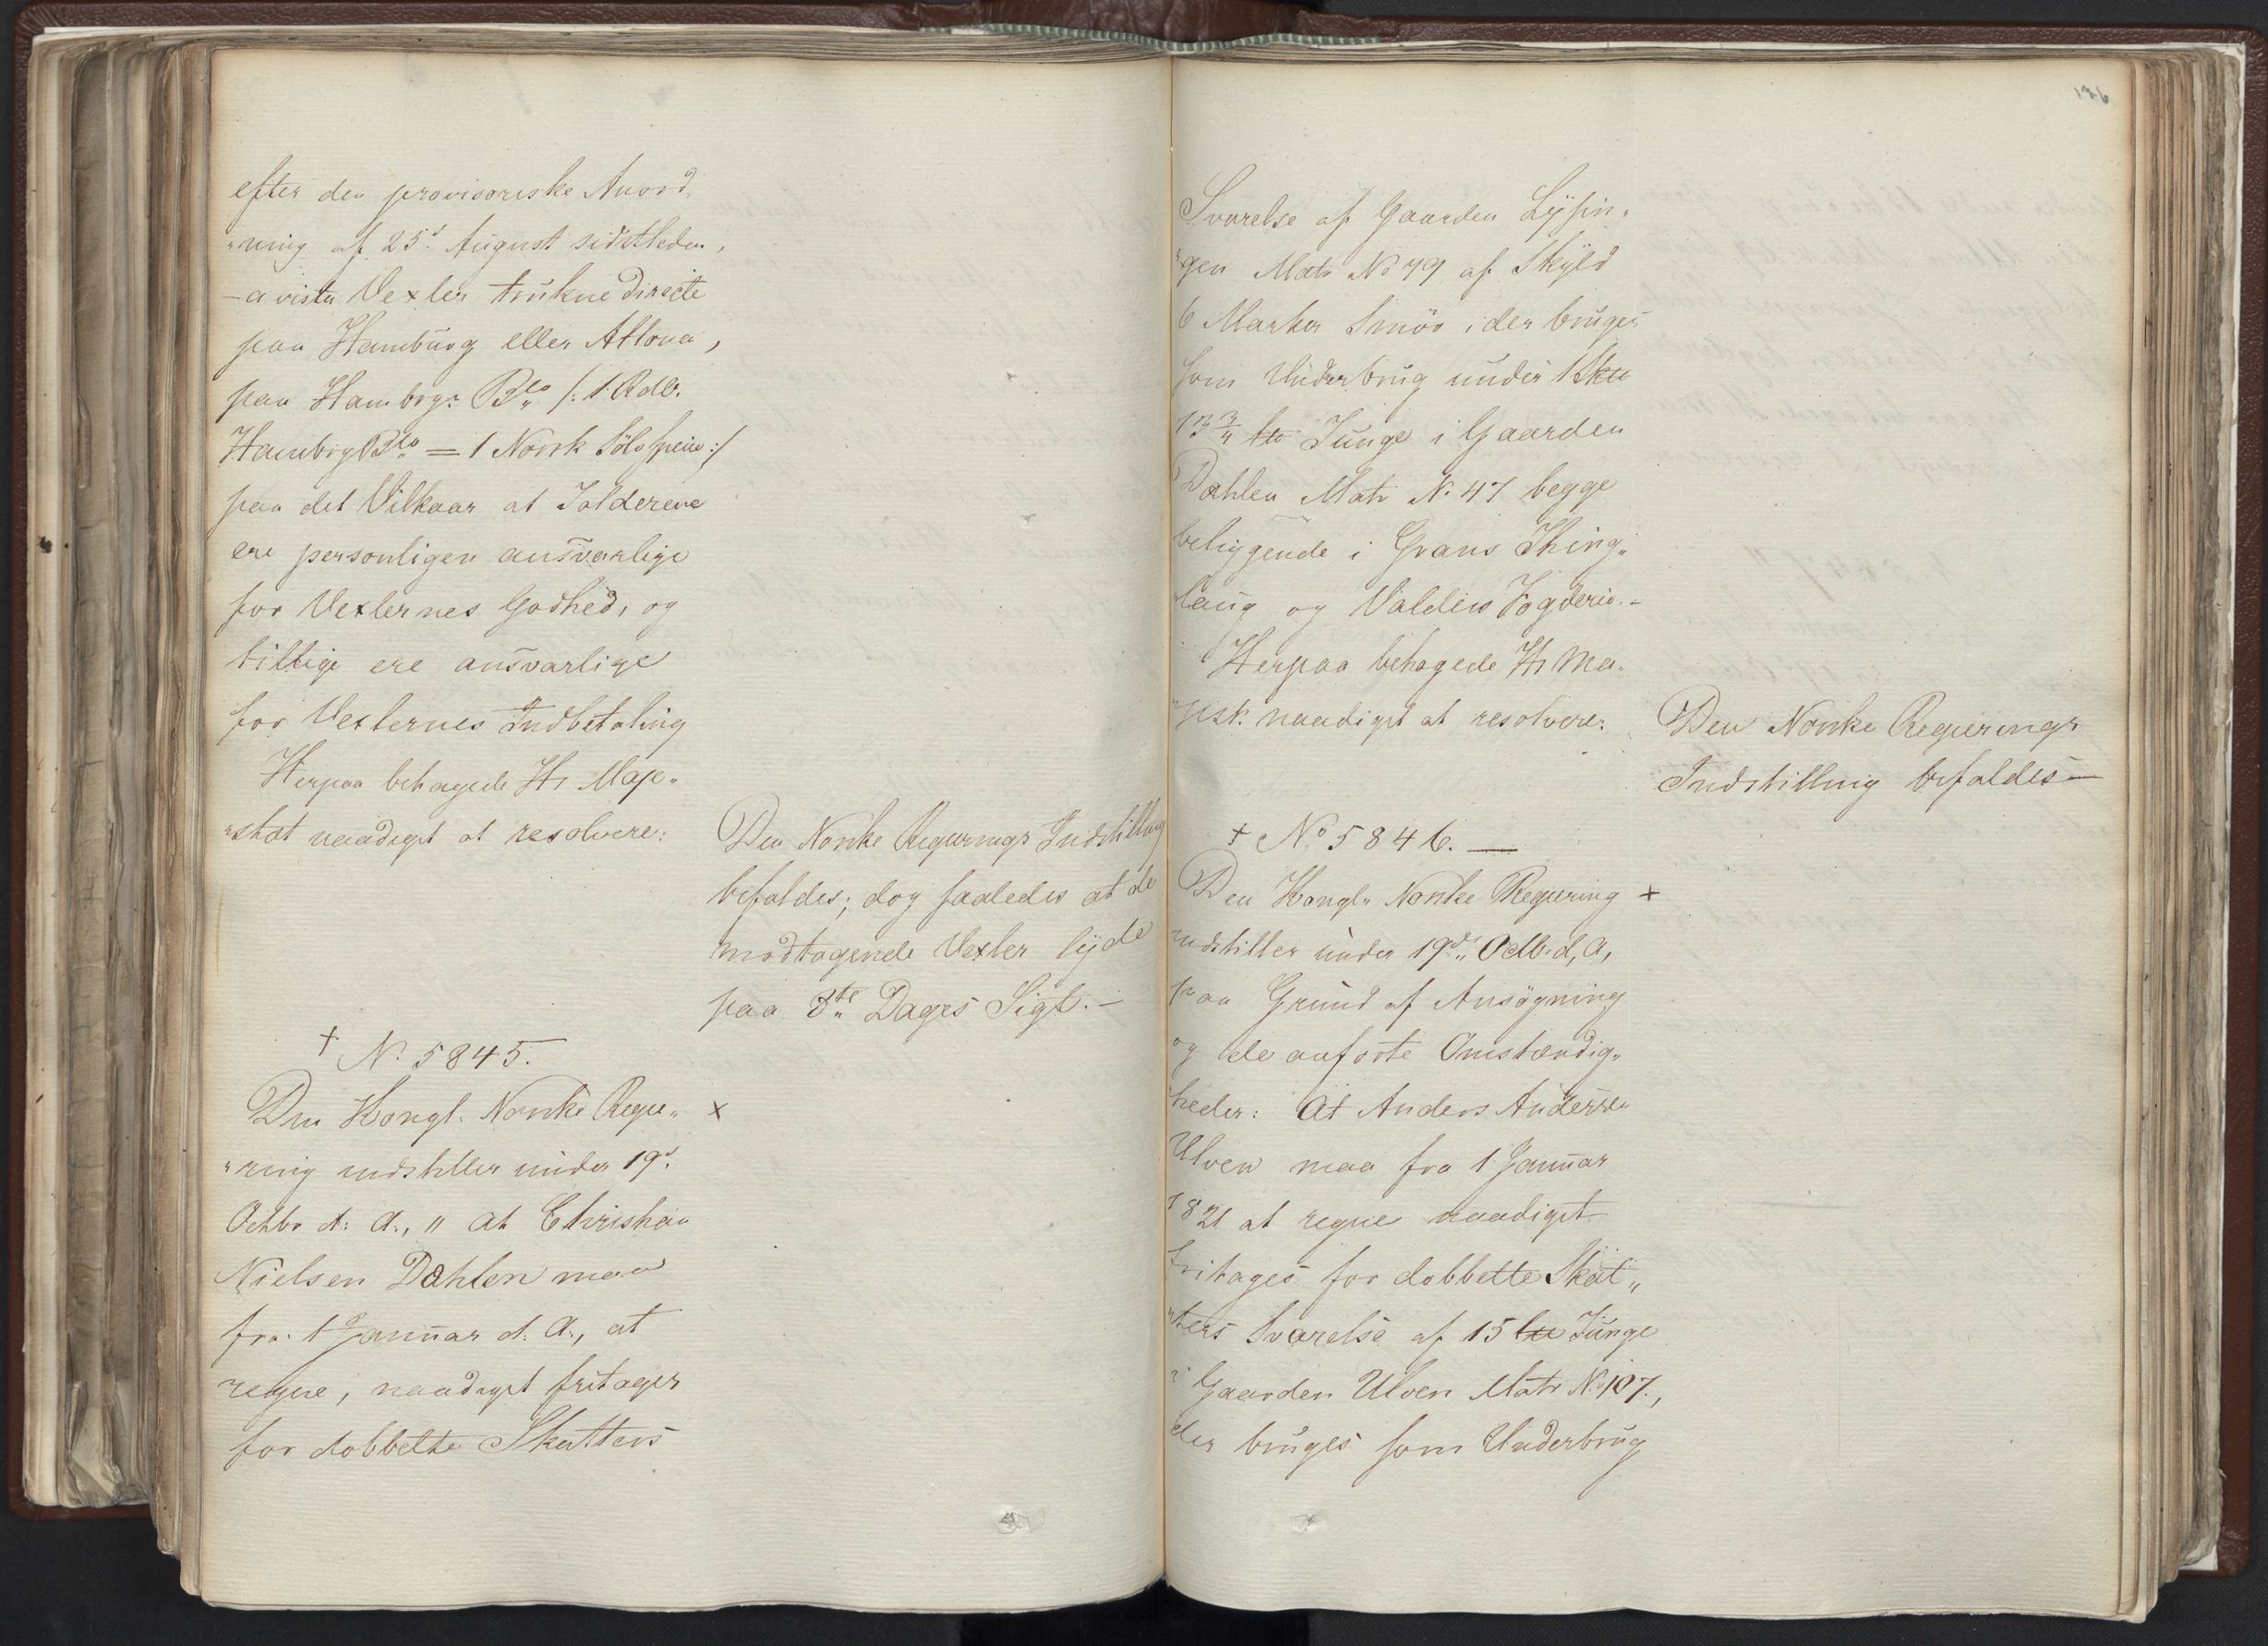 efter den provisoriske Anord,
"ning af 25d August sidstleden,
- a vista Vexler trukne directe
paa Hamburg eller Altona,
paa Hambrgs Bco /: 1 Rdlr.
Hambrg Bco = 1 Norsk Sölv speci :/
paa det Vilkaar at Tolderene
ere personligen ansvarlige
for Vexlernes Godhed, og
tillige ere ansvarlige
for Vexlernes Indbetaling
Herpaa behagede Hs Maje„
"stæt naadigst at resolvere:
Den Norske Regjerings Indstilling
bifaldes; dog saaledes at de
modtagende Vexler lÿde
paa 3te Dages Sigt. -
+ N. 5845.
Den Kongl. Norske Regje„ x
"ring indstiller under 19d.
Octbr d: A., „ at Christian
Nielsen Dahlen maa
fra 1 Januar d: A:, at
regne, naadigst fritages
for dobbelte Skatters
Svarelse af Gaarden Lÿsin„
"gen Matr No 79 af Skÿld
6 Marker Smör, der bruges
som Underbrug under 1 Skn
13 3/4 Tunge i Gaarden
Dahlen Matr N. 47 begge
beliggende i Grans Thing„
"laug og Valders Fogderie. -
Herpaa behagede Hs Ma„
"jest. naadigst at resolvere:
Den Norske Regjerings
Indstilling bifaldes -
+ No 5846. -
Den Kongl„ Norske Regjering x
indstiller under 19de„ Octb. d, A,
paa Grund af Ansögning
og de anförte Omstændig„
"heder: At Anders Anderssen
Ulven maa fra 1 Januar
1821 at regne naadigst
fritages for dobbelte Skat„
"ters Svarelse af 15 Tunge
i Gaarden Ulven Matr No 107.,
der bruges som Underbrug